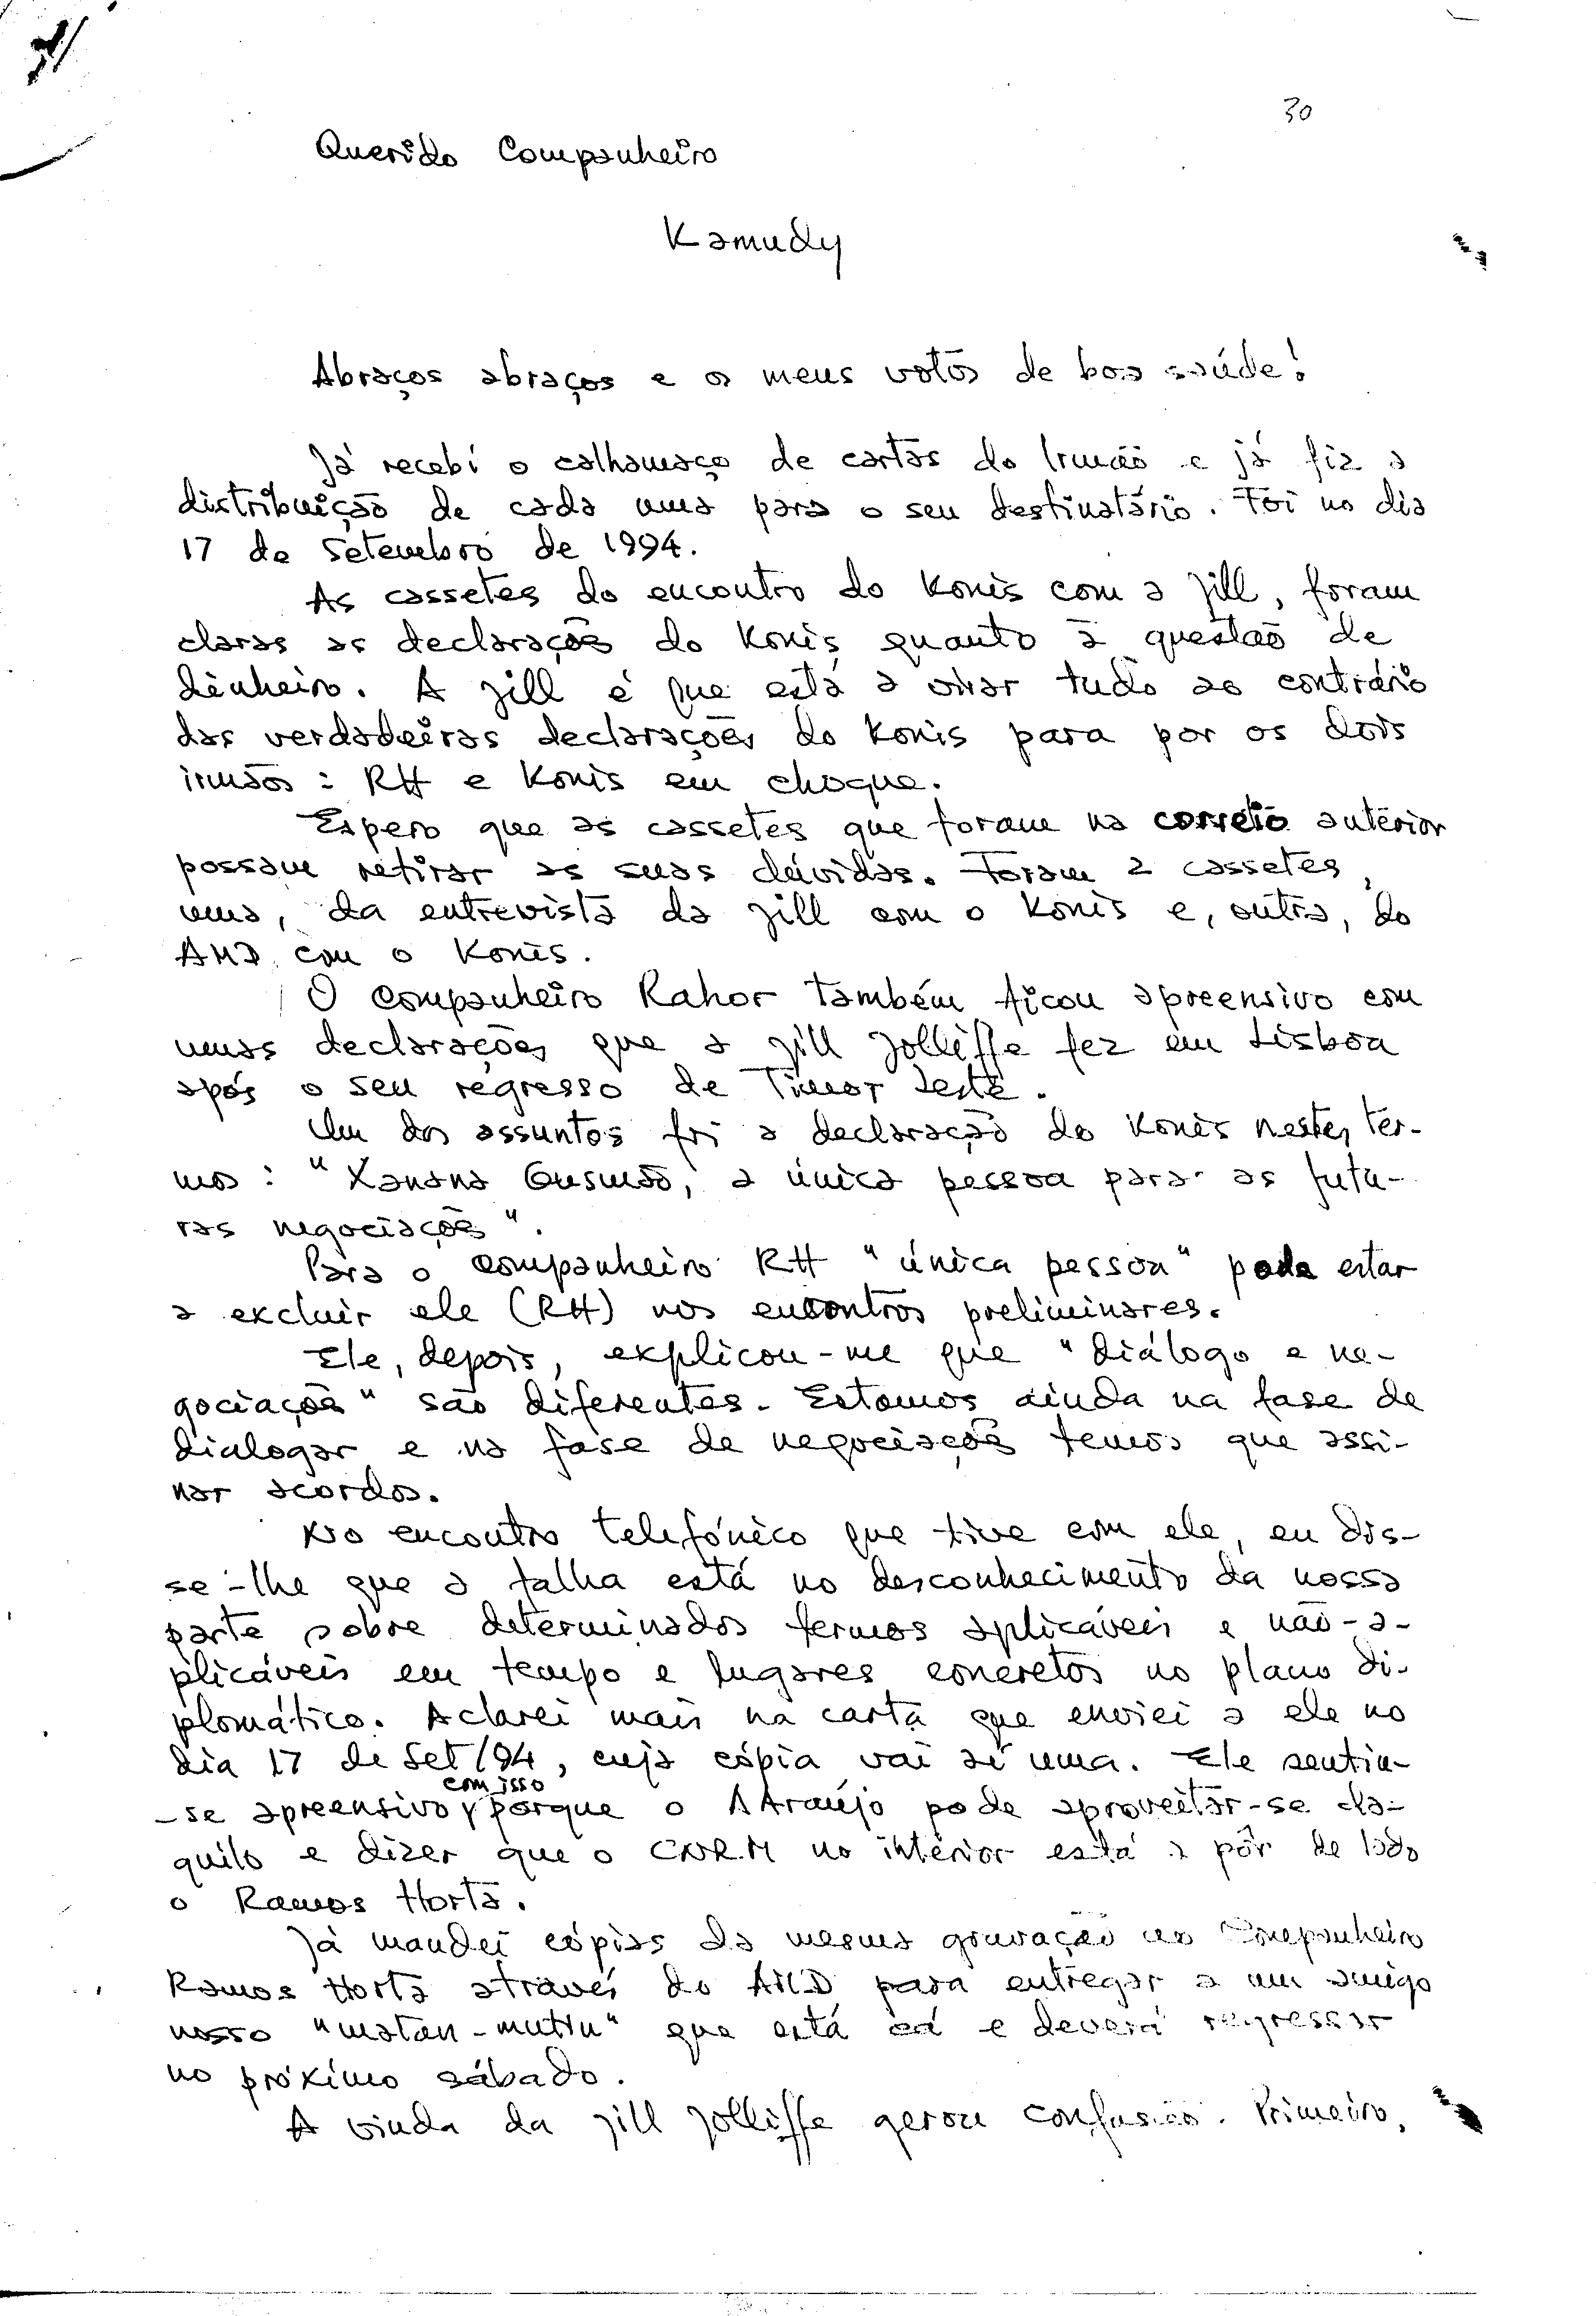 30
Querido Companheiro
Kamudy
Abraços abraços e os meus votos de boa saúde!
Já recebí o calhamaço de cartas do Irmão e já fiz a
distribuição de cada uma para o seu destinatário. Foi no dia
17 de Setembro de 1994.
As cassetes do encontro do Konis com a Jill, foram
claras as declarações do Konis quanto à questão de
dinheiro. A Jill é que está a virar tudo ao contrário
das verdadeiras declarações do Konis para por os dois
irmãos: RH e Konis em choque.
Espero que as cassetes que foram na correio anterior
possam retirar as suas dúvidas. Foram 2 cassetes,
uma, da entrevista da Jill com o Konis e, outra, do
AMD com o Konis.
O companheiro Rahor também ficou apreensivo com
umas declarações que a Jill Jolliffe fez em Lisboa
após o seu regresso de Timor Leste.
Um dos assuntos foi a declaração do Konis nestes ter-
mos: "Xanana Gusmão, a única pessoa para as futu-
ras negociações".
Para o companheiro RH "única pessoa" pode estar
a excluir ele (RH) nos encontros preliminares.
Ele, depois, explicou-me que "diálogo e ne-
gociações" são diferentes. Estamos ainda na fase de
dialogar e na fase de negociações temos que assi-
nar acordos.
No encontro telefónico que tive com ele, eu dis-
se-lhe que a falha está no desconhecimento da nossa
parte sobre determinados termos aplicáveis e não-a-
plicáveis em tempo e lugares concretos no plano di-
plomático. Aclarei mais na carta que enviei a ele no
dia 17 de Set/94, cuja cópia vai aí uma. Ele sentiu-
com isso
-se apreensivo, porque o AAraújo pode aproveitar-se da-
quilo e dizer que o CNRM no intérior está a pôr de lado
o Ramos Horta.
Já mandei cópias da mesma gravação ao Companheiro
Ramos Horta através do AMD para entregar a um amigo
nosso "matan-mutin" que está cá e deverá regressar
no próximo sábado.
A vinda da Jill Jolliffe gerou confusão. Primeiro,